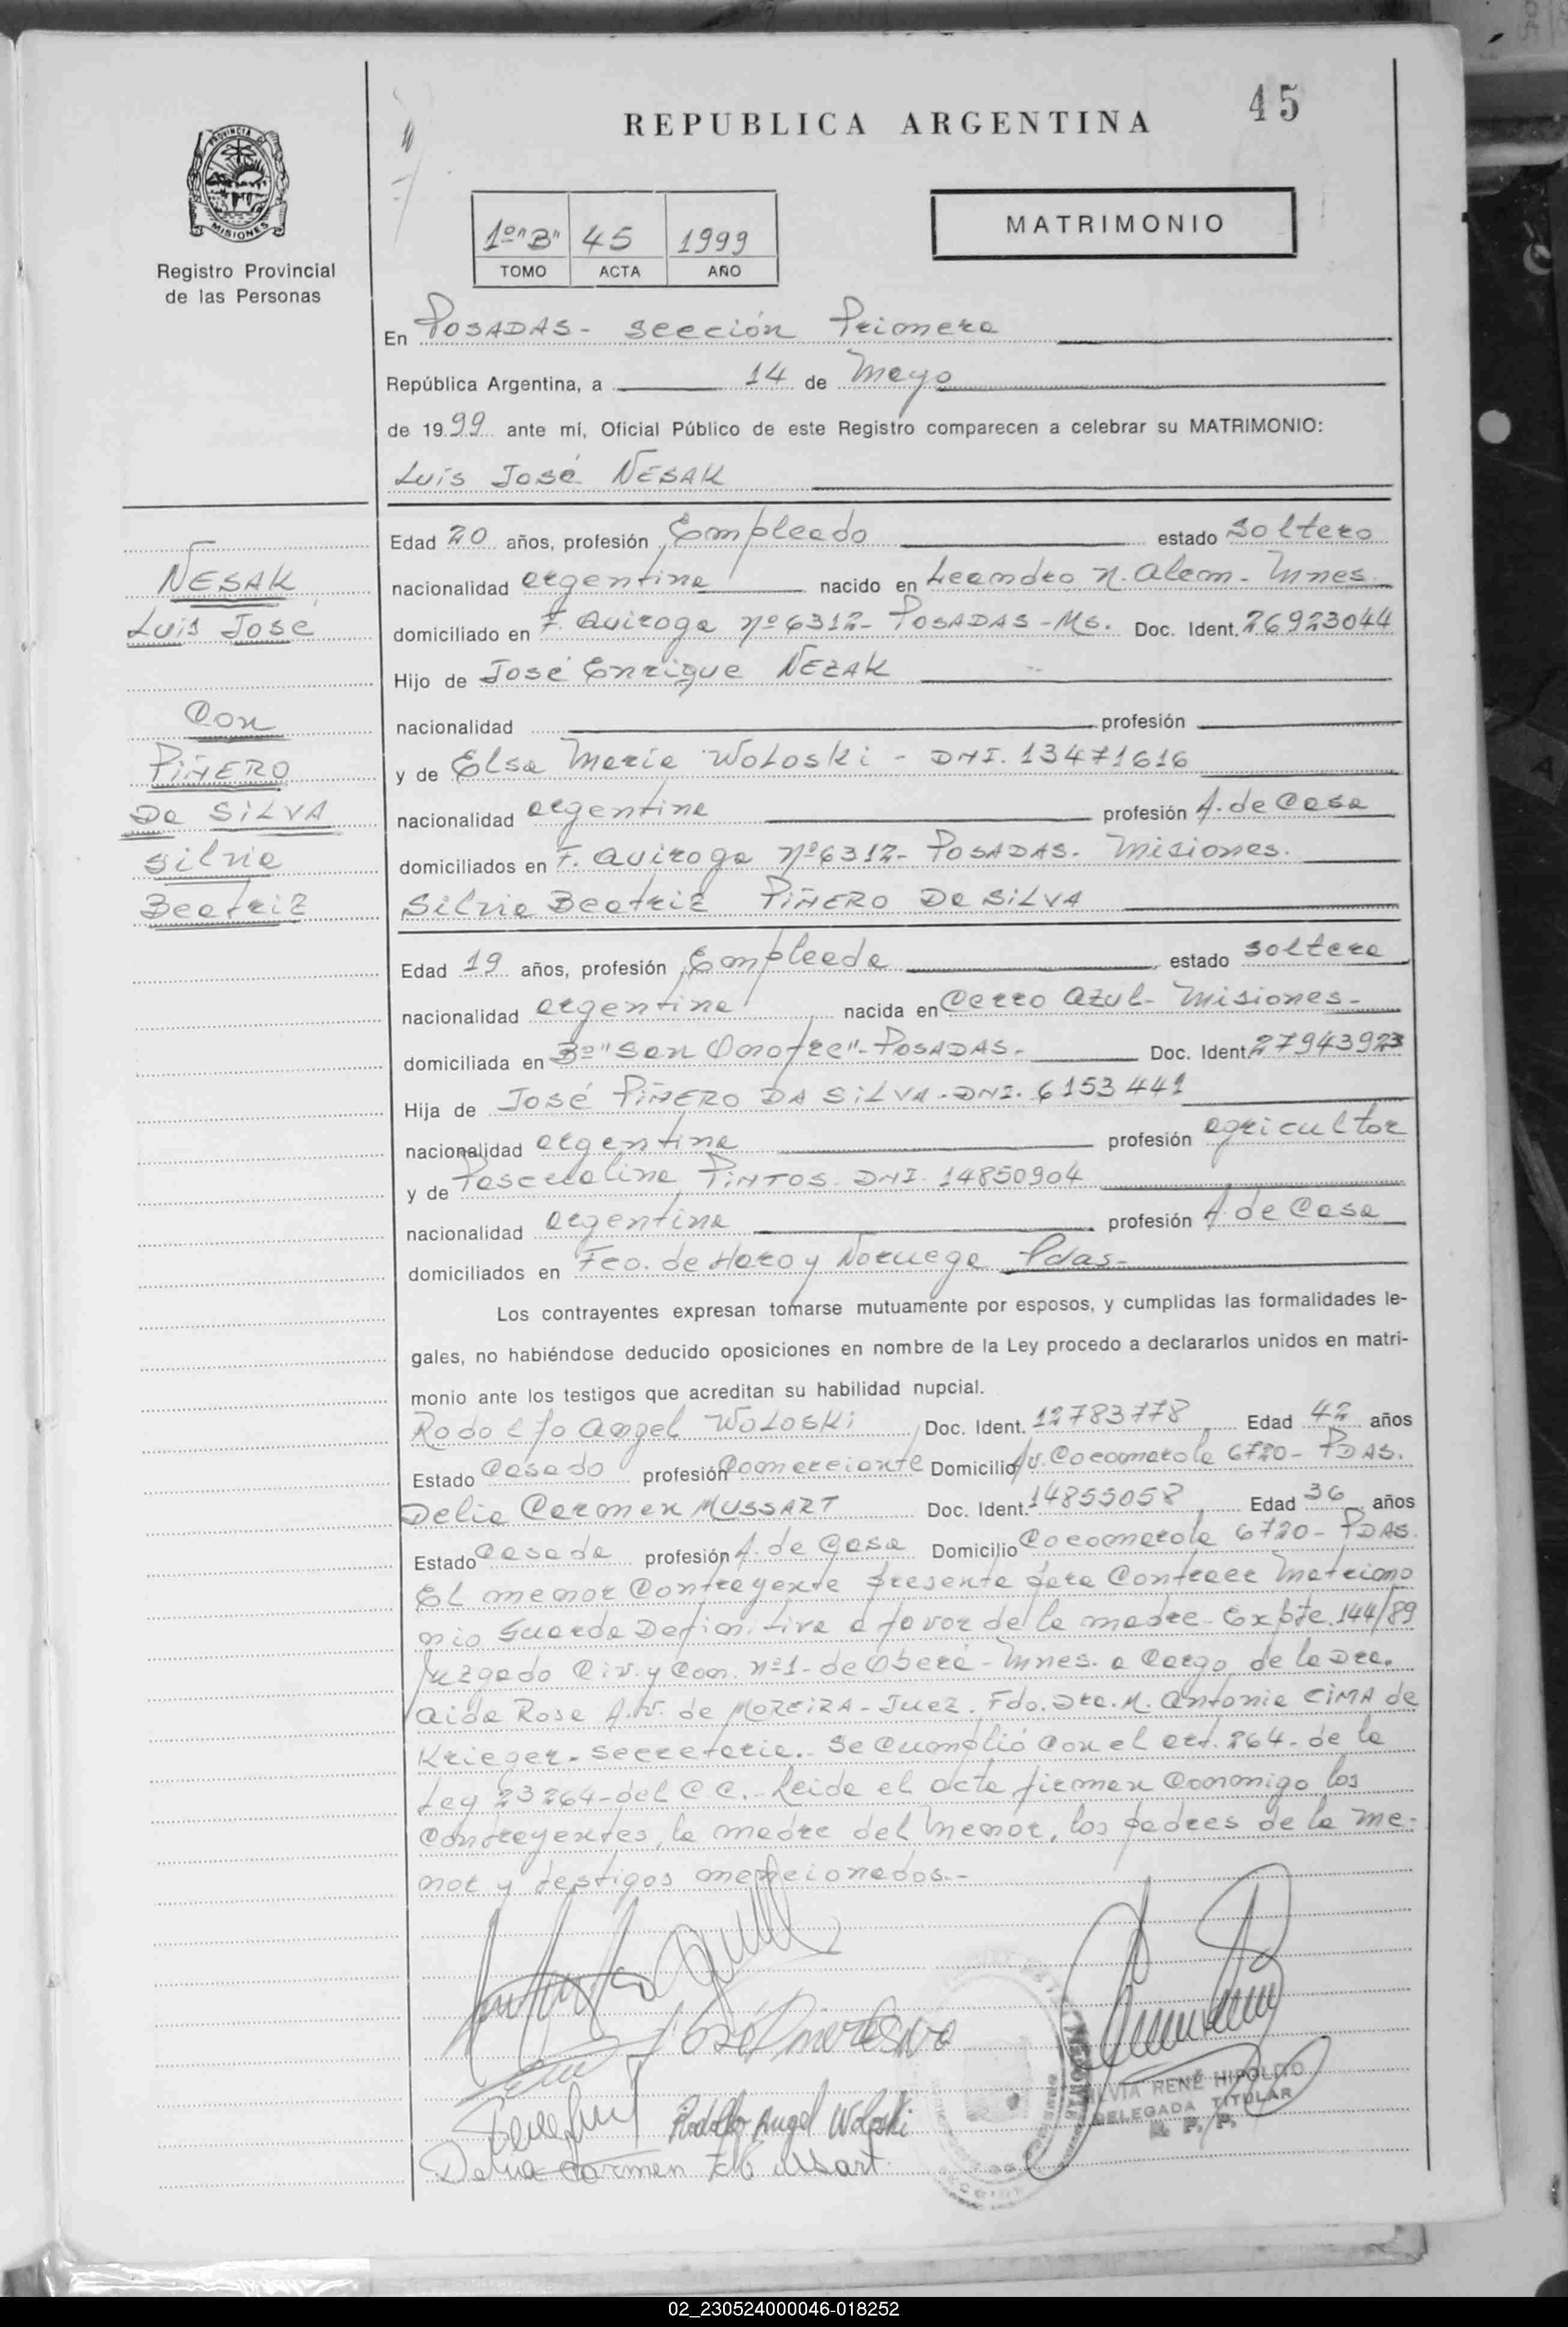 45
REPUBLICA ARGENTINA
PROVINCIA DE
MISIONES
Registro Provincial
de las Personas
1º "B" 45 1999
TOMO ACTA AÑO
MATRIMONIO
En POSADAS - Sección Primera
República Argentina, a 14 de Mayo
de 1999 ante mí, Oficial Público de este Registro comparecen a celebrar su MATRIMONIO:
Luis José NESAK
NESAK
Luis José
Con
PIÑERO
Da SILVA
Silvia
Beatriz
Edad 20 años, profesión Empleado estado Soltero
nacionalidad argentina nacido en Leandro N. Alem - Mnes.
domiciliado en F. Quiroga nº 6312 - POSADAS - Ms. Doc. Ident. 26923044
Hijo de José Enrique NEZAK
nacionalidad profesión
y de Elsa María WOLOSKI - DNI. 13471616
nacionalidad argentina profesión A. de Casa
domiciliados en F. Quiroga nº 6312 - POSADAS - Misiones.
Silvia Beatriz PIÑERO Da SILVA
Edad 19 años, profesión Empleada estado soltera
nacionalidad argentina nacida en Cerro Azul - Misiones -
domiciliada en Bº "San Onofre" - POSADAS - Doc. Ident. 27943923
Hija de José PIÑERO DA SILVA - DNI. 6153441
nacionalidad argentina profesión agricultor
y de Pascualina PINTOS - DNI. 14850904
nacionalidad argentina profesión A. de Casa
domiciliados en Fco. de Haro y Noruega Pdas -
Los contrayentes expresan tomarse mutuamente por esposos, y cumplidas las formalidades le-
gales, no habiéndose deducido oposiciones en nombre de la Ley procedo a declararlos unidos en matri-
monio ante los testigos que acreditan su habilidad nupcial.
Rodolfo Angel WOLOSKI Doc. Ident. 12783778 Edad 42 años
Estado Casado profesión Comerciante Domicilio Av. Cocomarola 6720 - PDAS.
Delia Carmen MUSSART Doc. Ident. 14855058 Edad 36 años
Estado Casada profesión A. de Casa Domicilio Cocomarola 6720 - PDAS.
El menor Contrayente presenta para Contraer Matrimo
nio Guarda Definitiva a favor de la madre - Expte. 144/89
Juzgado Civ. y Com. nº 1 - de Oberá - Mnes. a Cargo de la Dra.
Aida Rosa A.V. de MOREIRA - Juez. Fdo. Dra. M. Antonia CIMA de
Krieger - Secretaria. - Se Cumplió Con el art. 264 - de la
Ley 23264 - del C.C. - Leida el acta firman Conmigo los
Contrayentes, la madre del Menor, los padres de la me-
nor y testigos mencionados. -
José Piñero Da Silva
Rodolfo Angel Woloski
Delia Carmen Mussart
SILVIA RENÉ HIPOLITO
DELEGADA TITULAR
R. P. P.
02_230524000046-018252